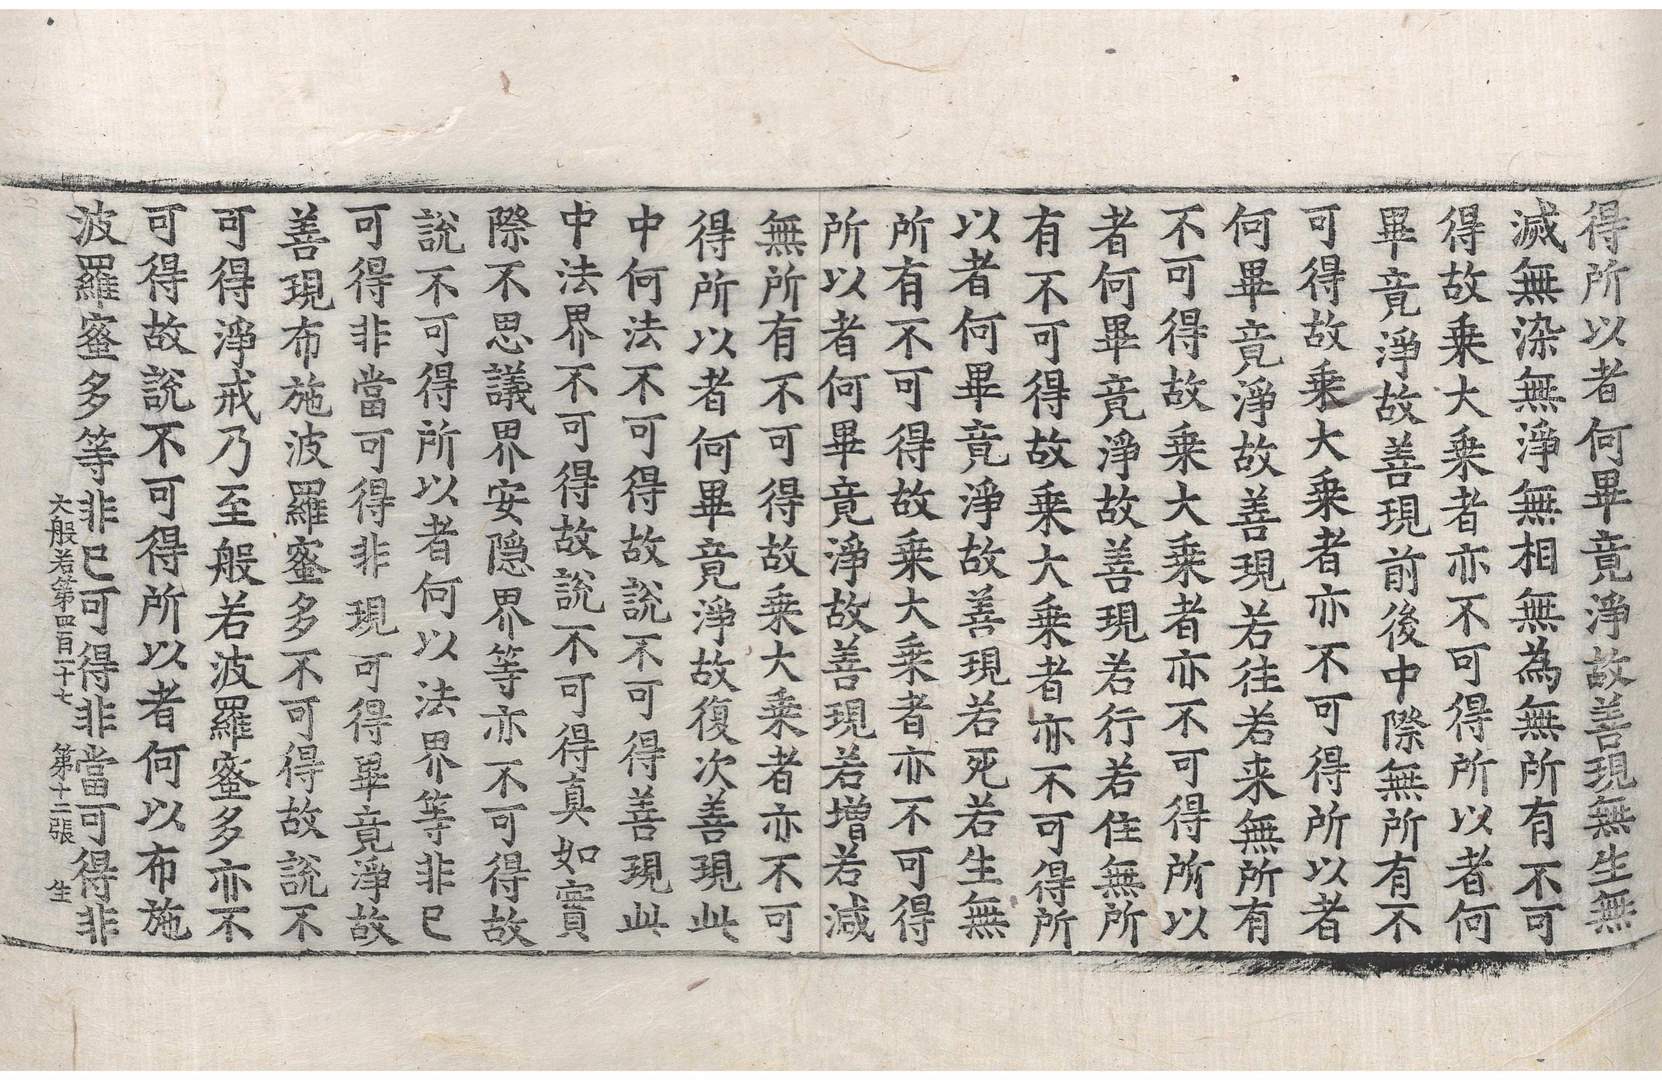 得所以者何畢竟淨故善現無生無
滅無染無淨無相無為無所有不可
得故乗大乗者亦不可得所以者何
畢竟淨故善現前後中際無所有不
可得故乗大乗者亦不可得所以者
何畢竟淨故善現若往若来無所有
不可得故乗大乗者亦不可得所以
者何畢竟淨故善現若行若住無所
有不可得故乗大乗者亦不可得所
以者何畢竟淨故善現若死若生無
所有不可得故乗大乗者亦不可得
所以者何畢竟淨故善現若增若減
無所有不可得故乗大乗者亦不可
得所以者何畢竟淨故復次善現此
中何法不可得故說不可得善現此
中法界不可得故說不可得真如實
際不思議界安隠界等亦不可得故
說不可得所以者何以法界等非已
可得非當可得非現可得畢竟淨故
善現布施波羅蜜多不可得故說不
可得淨戒乃至般若波羅蜜多亦不
可得故說不可得所以者何以布施
波羅蜜多等非已可得非當可得非
大般若第四百二十七 第十二張 生